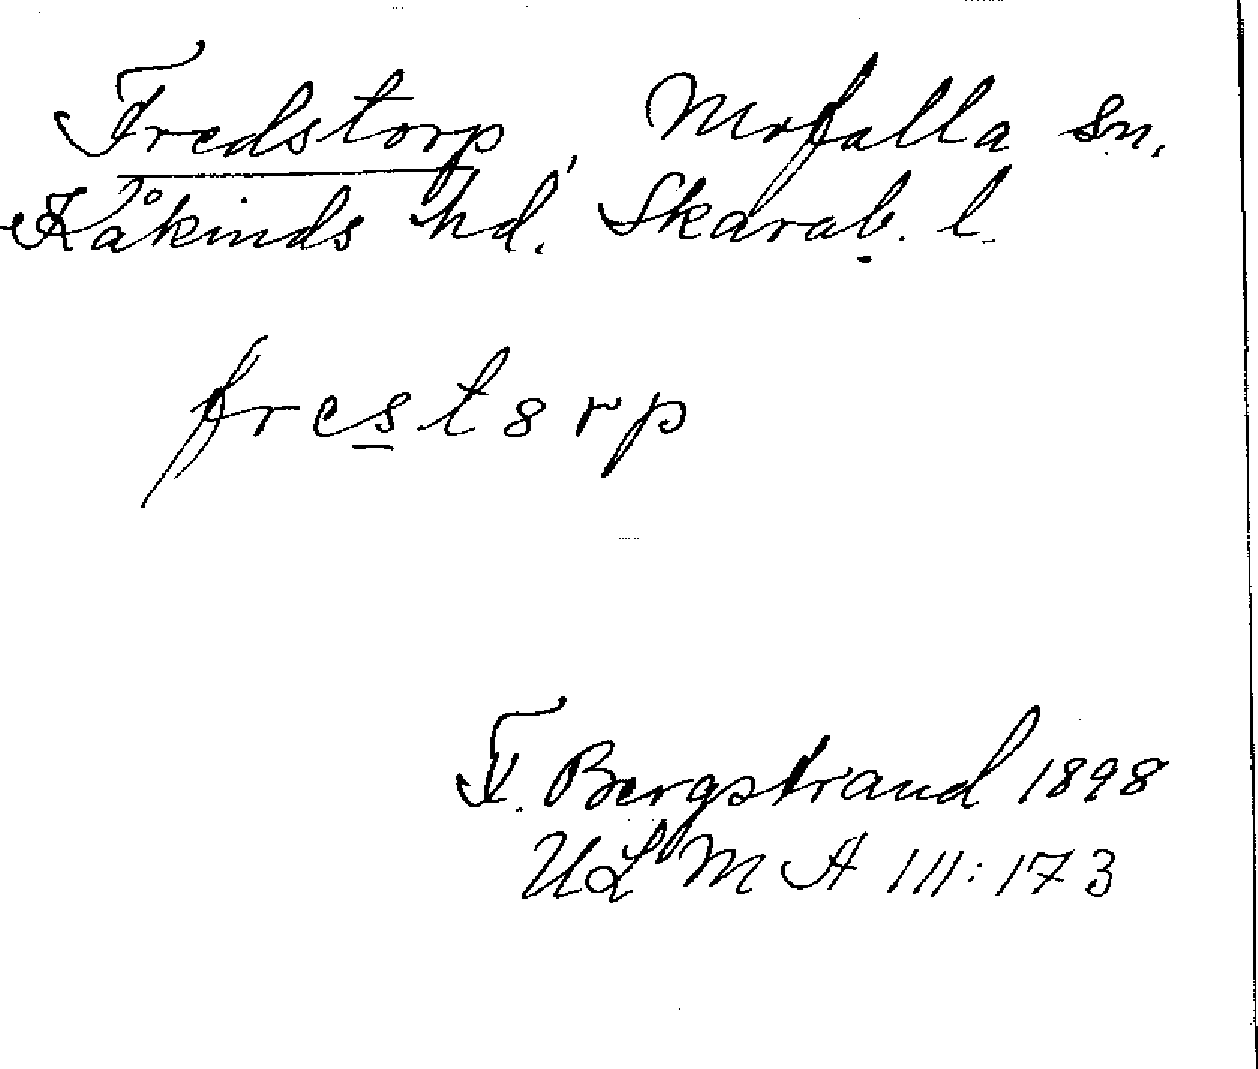 Fredstorp, Mofalla sn,
Kåkinds hd. Skarab. l.
frestȣrp
F. Bergstrand 1898
ULMA 111:173